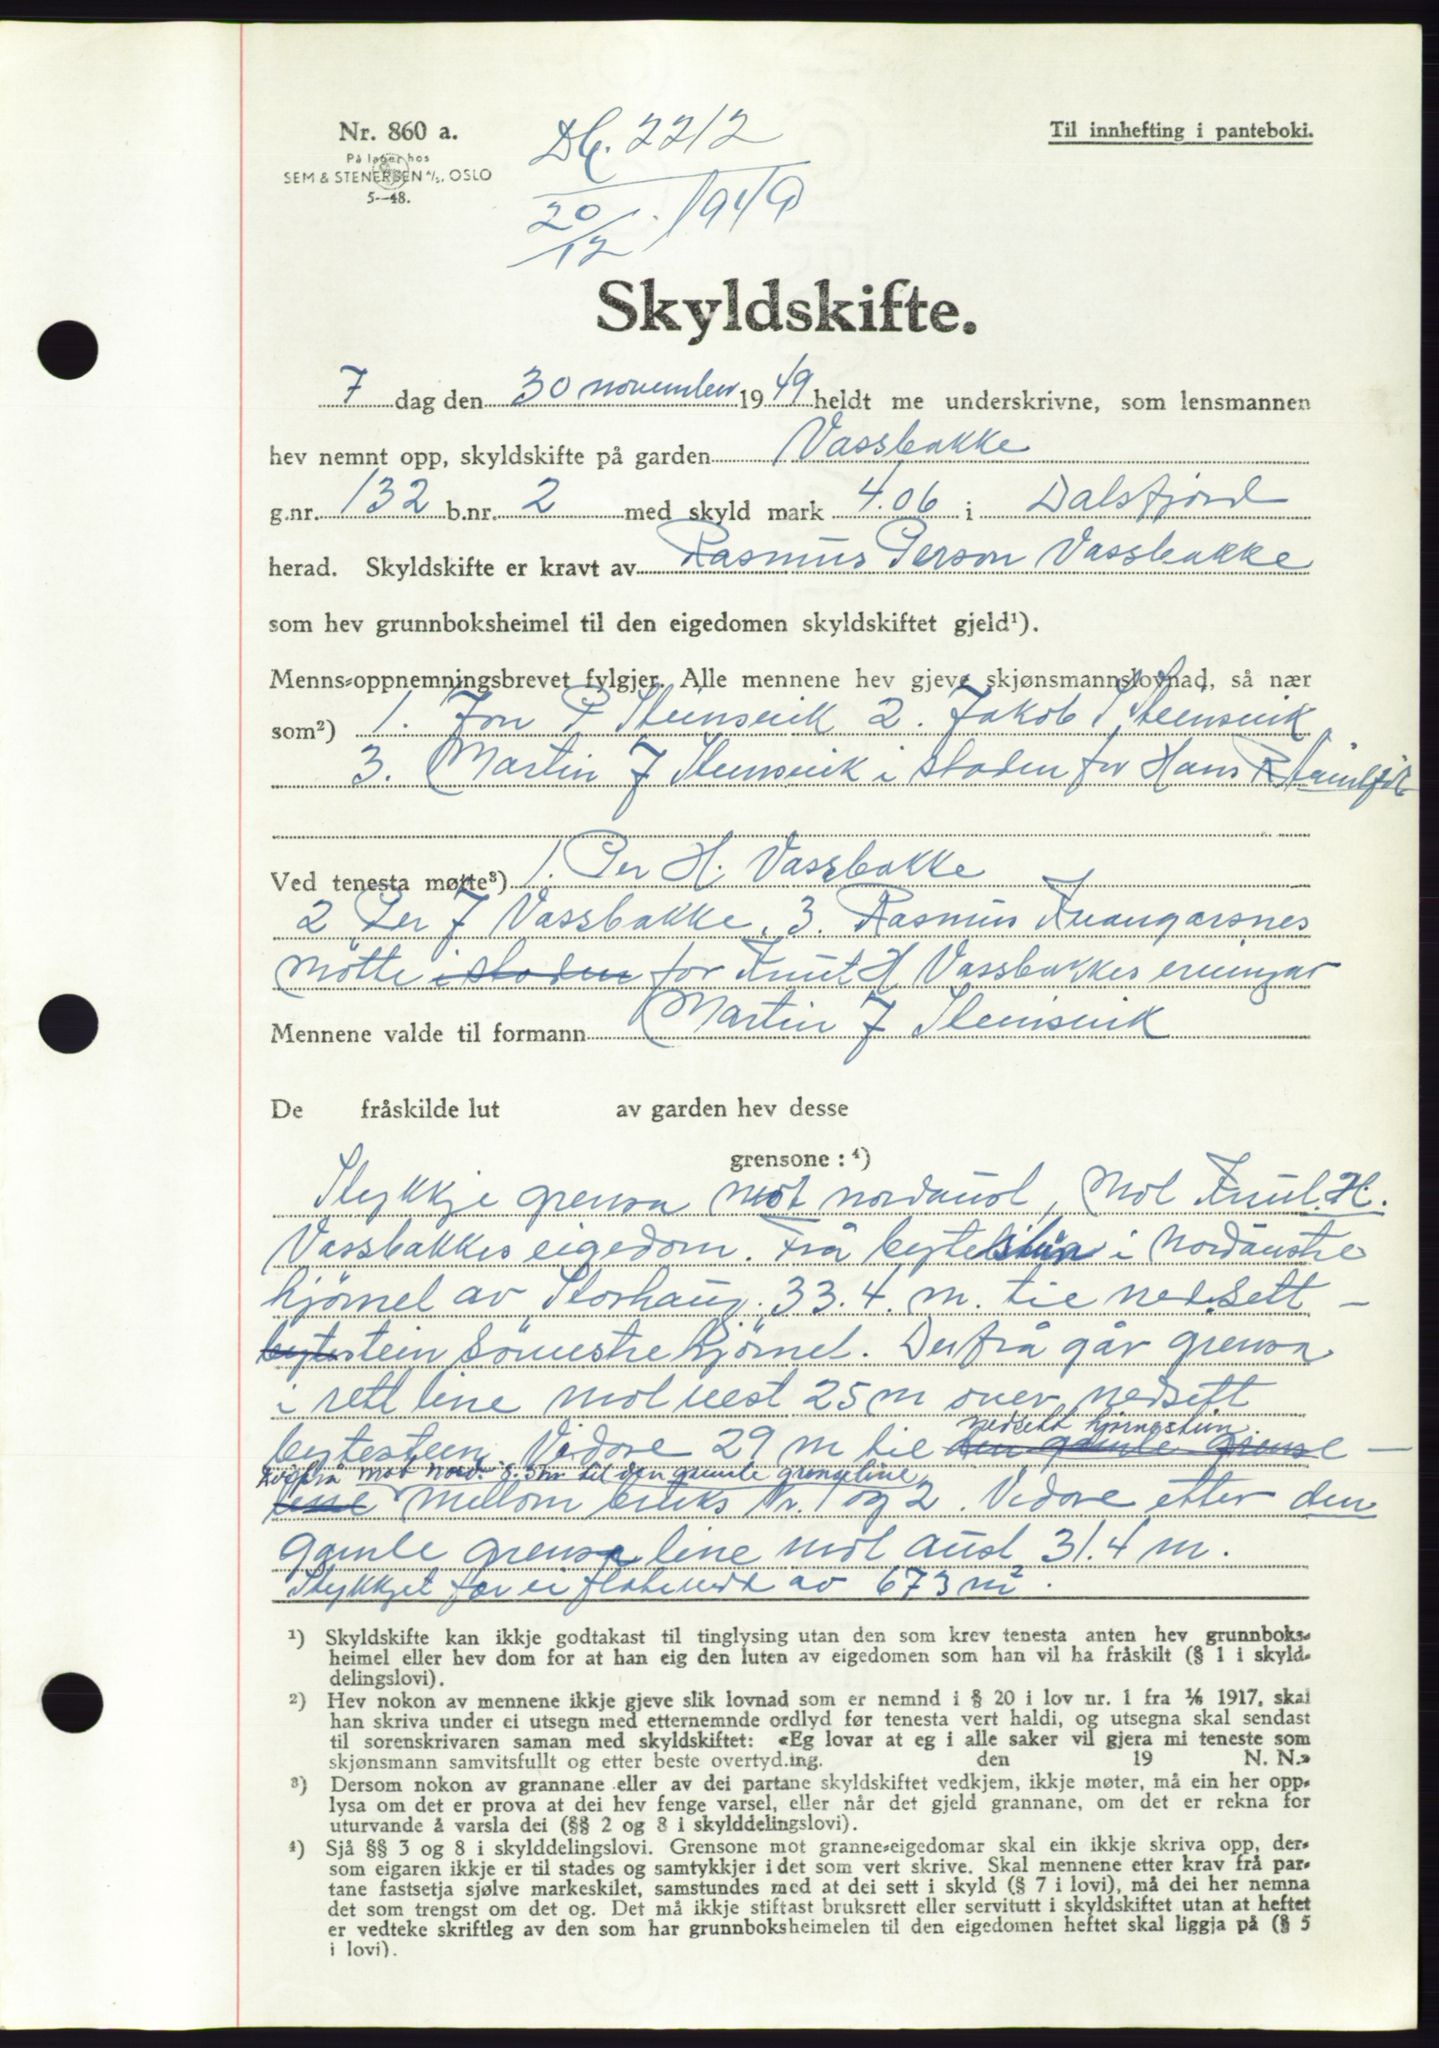 Nr. 860 a.
På lager hos
SEM & STENERSEN A/S, OSLO
5--48.
Db. 2212
20/12. 1949
Til innhefting i panteboki.
Skyldskifte.
7 dag den 30 november 1949 heldt me underskrivne, som lensmannen
hev nemnt opp, skyldskifte på garden Vassbakke
g.nr. 132 b.nr. 2 med skyld mark 4.06 i Dalsfjord
herad. Skyldskifte er kravt av Rasmus Person Vassbakke
som hev grunnboksheimel til den eigedomen skyldskiftet gjeld¹).
Menns-oppnemningsbrevet fylgjer. Alle mennene hev gjeve skjønsmannslovnad, så nær
som²) 1. Jon P Steinsvik 2. Jakob Steinsvik
3. Martin J Steinsvik i staden for Hans R
Ved tenesta møtte³) 1. Per H. Vassbakke
2 Per J Vassbakke, 3. Rasmus Kvangarsnes
møtte i staden for Knut H Vassbakkes ervingar
Mennene valde til formann Martin J Steinsvik
De fråskilde lut av garden hev desse
grensone : ⁴)
Stykkje grensa mot nordaust, mot Knut. H.
Vassbakkes eigedom. Frå bytestein i nordaustre
hjörnel av Storhaug. 33.4. m. til nedsett -
bytestein söraustre hjörnel. Derfrå går grensa
i rett line mot vest 25 m over nedsett
nedsett hjørnestein
bytestein Vidare 29 m til den gamle grense -
derfrå mot nord 8.3 m til den gamle grenseline
line mellom bruks nr. 1 og 2. Vidare etter den
gamle grensa line mot aust 31.4 m.
Stykkjet får ei flatevidd av 673 m².
¹) Skyldskifte kan ikkje godtakast til tinglysing utan den som krev tenesta anten hev grunnboks-
heimel eller hev dom for at han eig den luten av eigedomen som han vil ha fråskilt (§ 1 i skyld-
delingslovi).
²) Hev nokon av mennene ikkje gjeve slik lovnad som er nemnd i § 20 i lov nr. 1 fra 1/6 1917, skal
han skriva under ei utsegn med etternemnde ordlyd før tenesta vert haldi, og utsegna skal sendast
til sorenskrivaren saman med skyldskiftet: «Eg lovar at eg i alle saker vil gjera mi teneste som
skjønsmann samvitsfullt og etter beste overtyd.ing. den 19 N. N.»
³) Dersom nokon av grannane eller av dei partane skyldskiftet vedkjem, ikkje møter, må ein her opp-
lysa om det er prova at dei hev fenge varsel, eller når det gjeld grannane, om det er rekna for
uturvande å varsla dei (§§ 2 og 8 i skylddelingslovi).
⁴) Sjå §§ 3 og 8 i skylddelingslovi. Grensone mot granne-eigedomar skal ein ikkje skriva opp, der-
som eigaren ikkje er til stades og samtykkjer i det som vert skrive. Skal mennene etter krav frå par-
tane fastsetja sjølve markeskilet, samstundes med at dei sett i skyld (§ 7 i lovi), må dei her nemna
det som trengst om det og. Det må ikkje stiftast bruksrett eller servitutt i skyldskiftet utan at heftet
er vedteke skriftleg av den som har grunnboksheimelen til den eigedomen heftet skal liggja på (§ 5
i lovi).